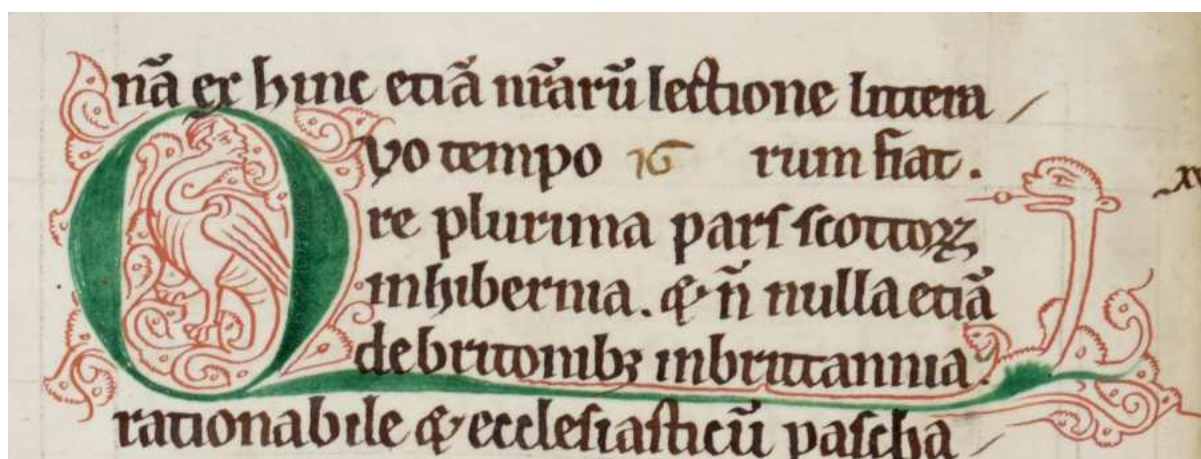 nā ex hinc etiā nr̄arū lectione littera /
QVo tempo 16 rum fiat .
re plurima parſ ſcottoꝝ
inhibernia . & n̄ nulla etiā
debritonibꝫ inbrittannia .
rationabile & eccleſiaſticū paſcha /